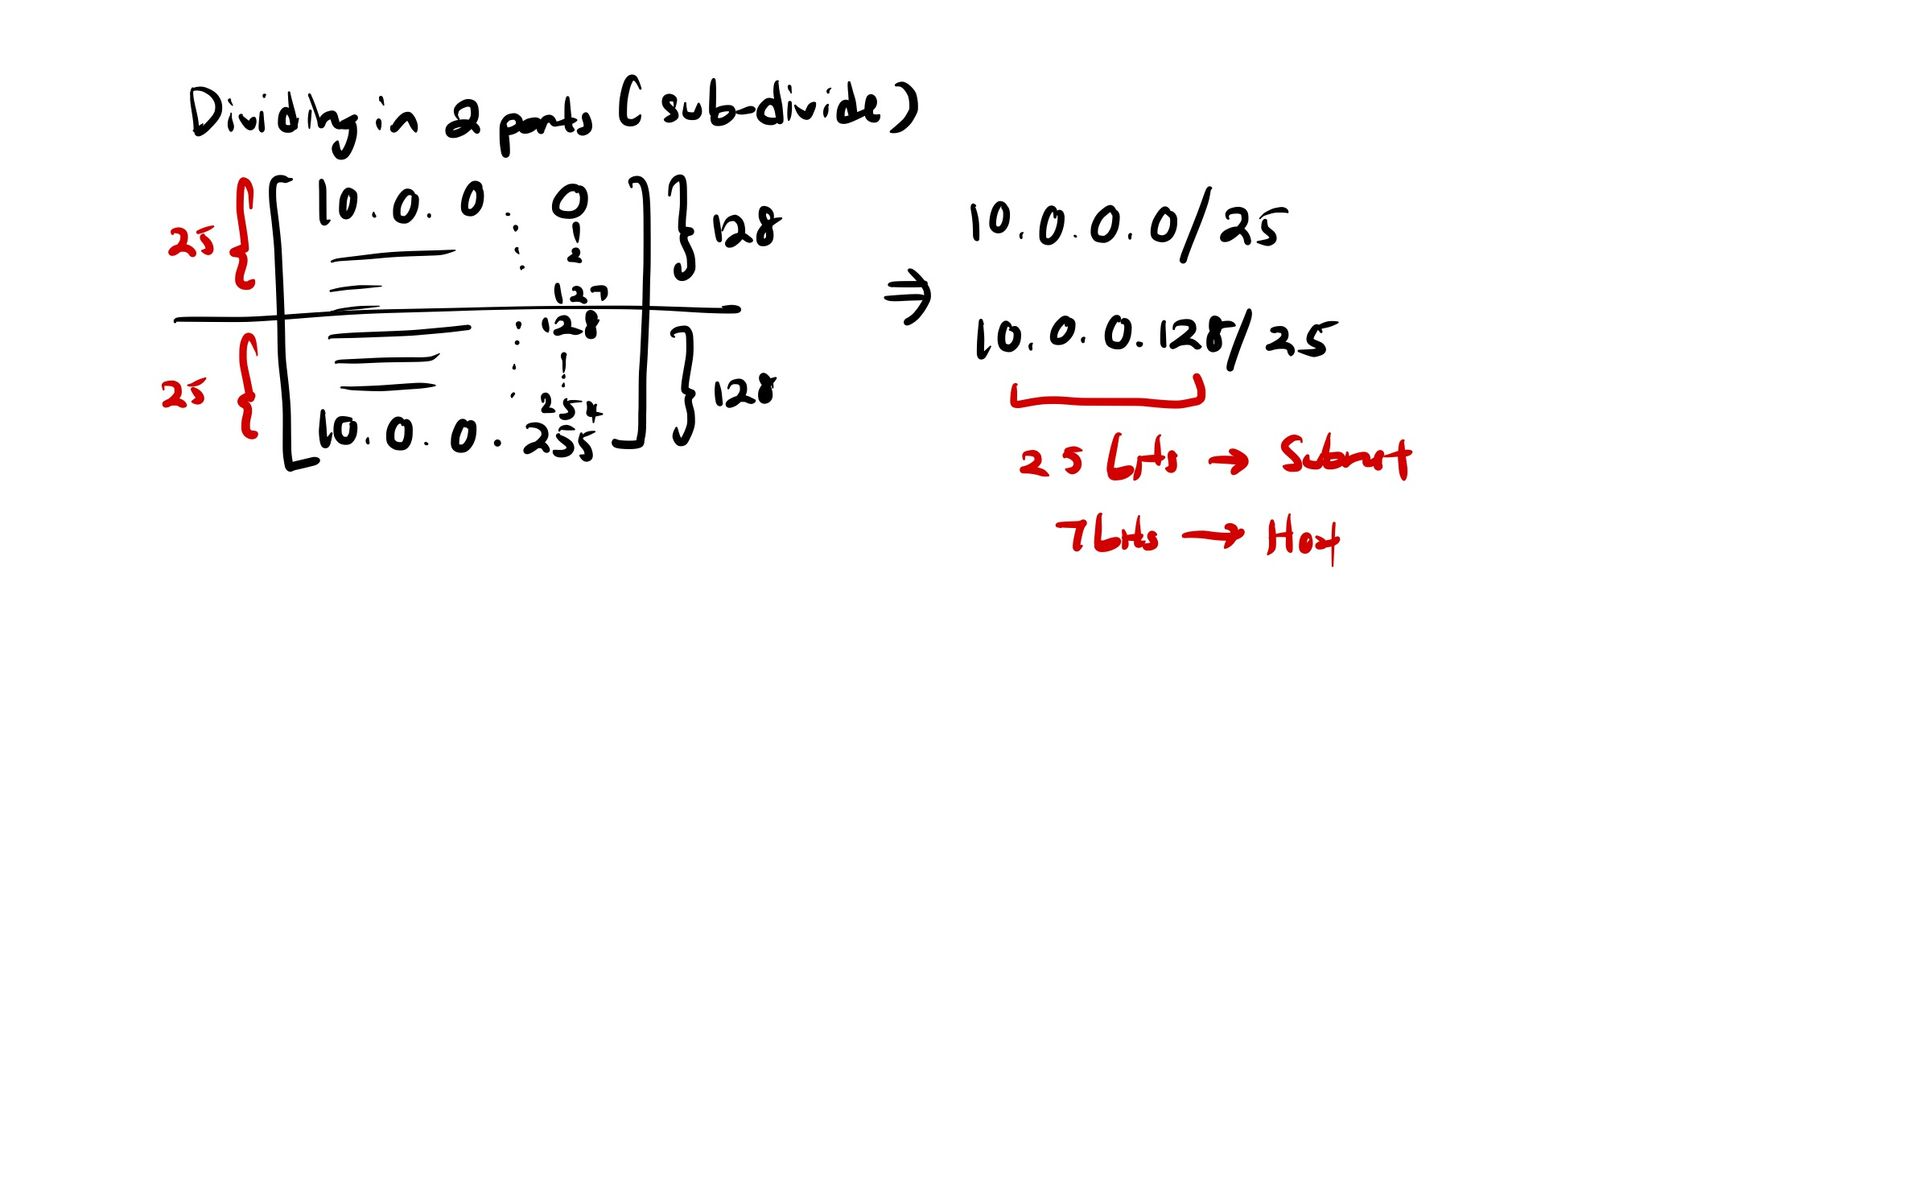 Dividing in 2 parts (sub-divide)
25 { [ 10.0.0.0 ] } 128
1
2
127
128
25 { } 128
254
10.0.0.255
⇒ 10.0.0.0/25
10.0.0.128/25
25 bits → Subnet
7 bits → Host